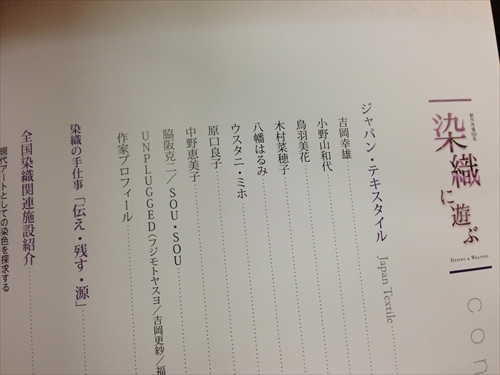 染織に遊ぶ
DYEING & WEAVING
con
ジャパン・テキスタイル Japan Textile
吉岡幸雄
小野山和代
鳥羽美花
木村菜穂子
八幡はるみ
ウスタニ・ミホ
原口良子
中野恵美子
脇阪克二／SOU・SOU
UNPLUGGED（フジモトヤスヨ／吉岡更紗／福
作家プロフィール
染織の手仕事「伝え・残す・源」
全国染織関連施設紹介
現代アートとしての染色を探求する